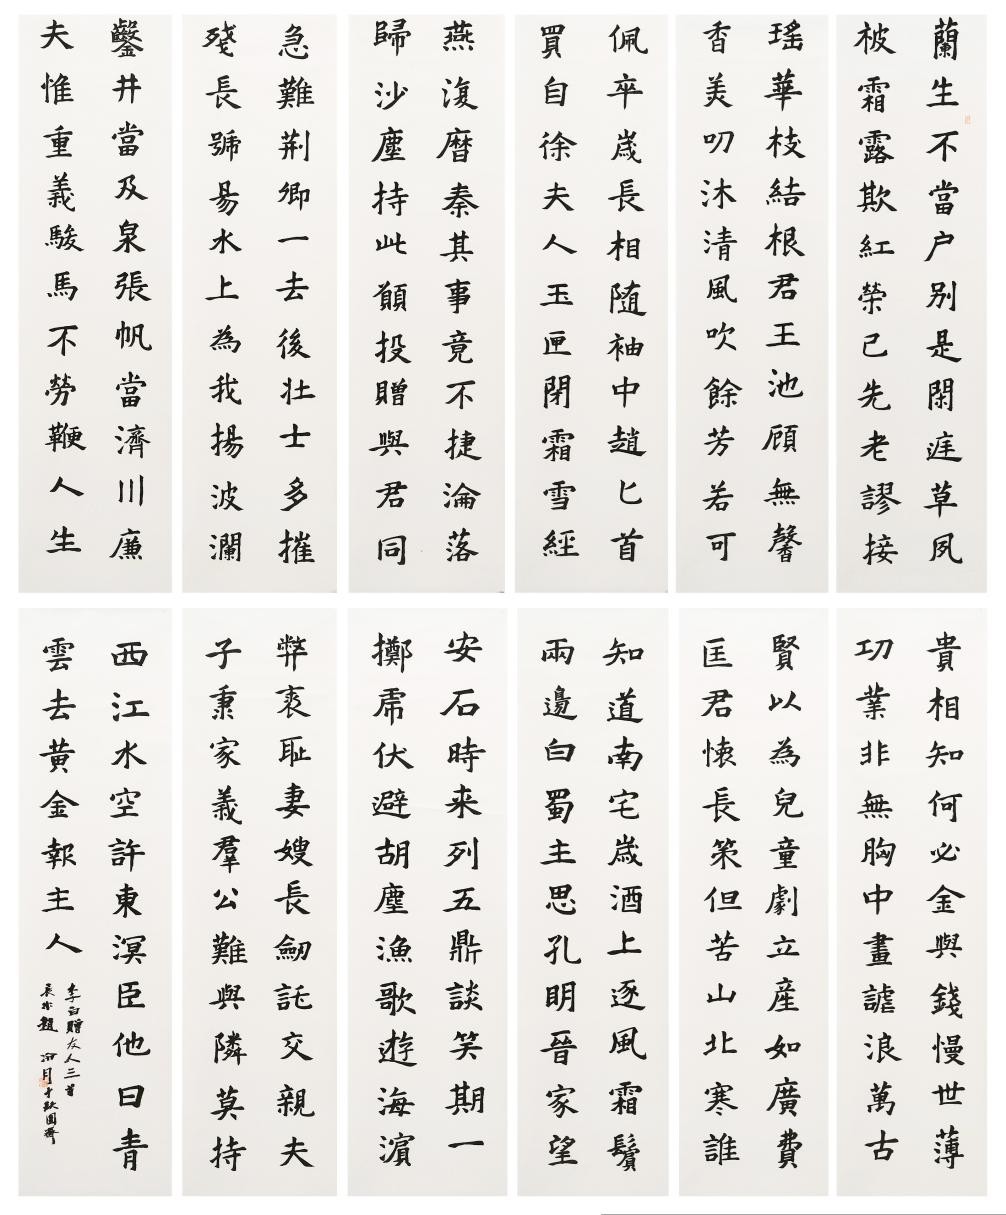 蘭生不當户别是閑庭草夙
被霜露欺紅榮已先老謬接
瑤華枝結根君王池顧無馨
香美叨沐清風吹餘芳若可
佩卒歲長相随袖中趙匕首
買自徐夫人玉匣閉霜雪經
燕復曆秦其事竟不捷淪落
歸沙塵持此願投贈與君同
急難荆卿一去後壯士多摧
殘長號易水上為我揚波瀾
鑿井當及泉張帆當濟川廉
夫惟重義駿馬不勞鞭人生
貴相知何必金與錢慢世薄
功業非無胸中畫謔浪萬古
賢以為兒童劇立産如廣費
匡君懷長策但苦山北寒誰
知道南宅歲酒上逐風霜鬢
兩邊白蜀主思孔明晉家望
安石時来列五鼎談笑期一
擲虎伏避胡塵漁歌遊海濱
弊裘恥妻嫂長劒託交親夫
子秉家義羣公難與隣莫持
西江水空許東溟臣他日青
雲去黄金報主人
李白贈友人三首